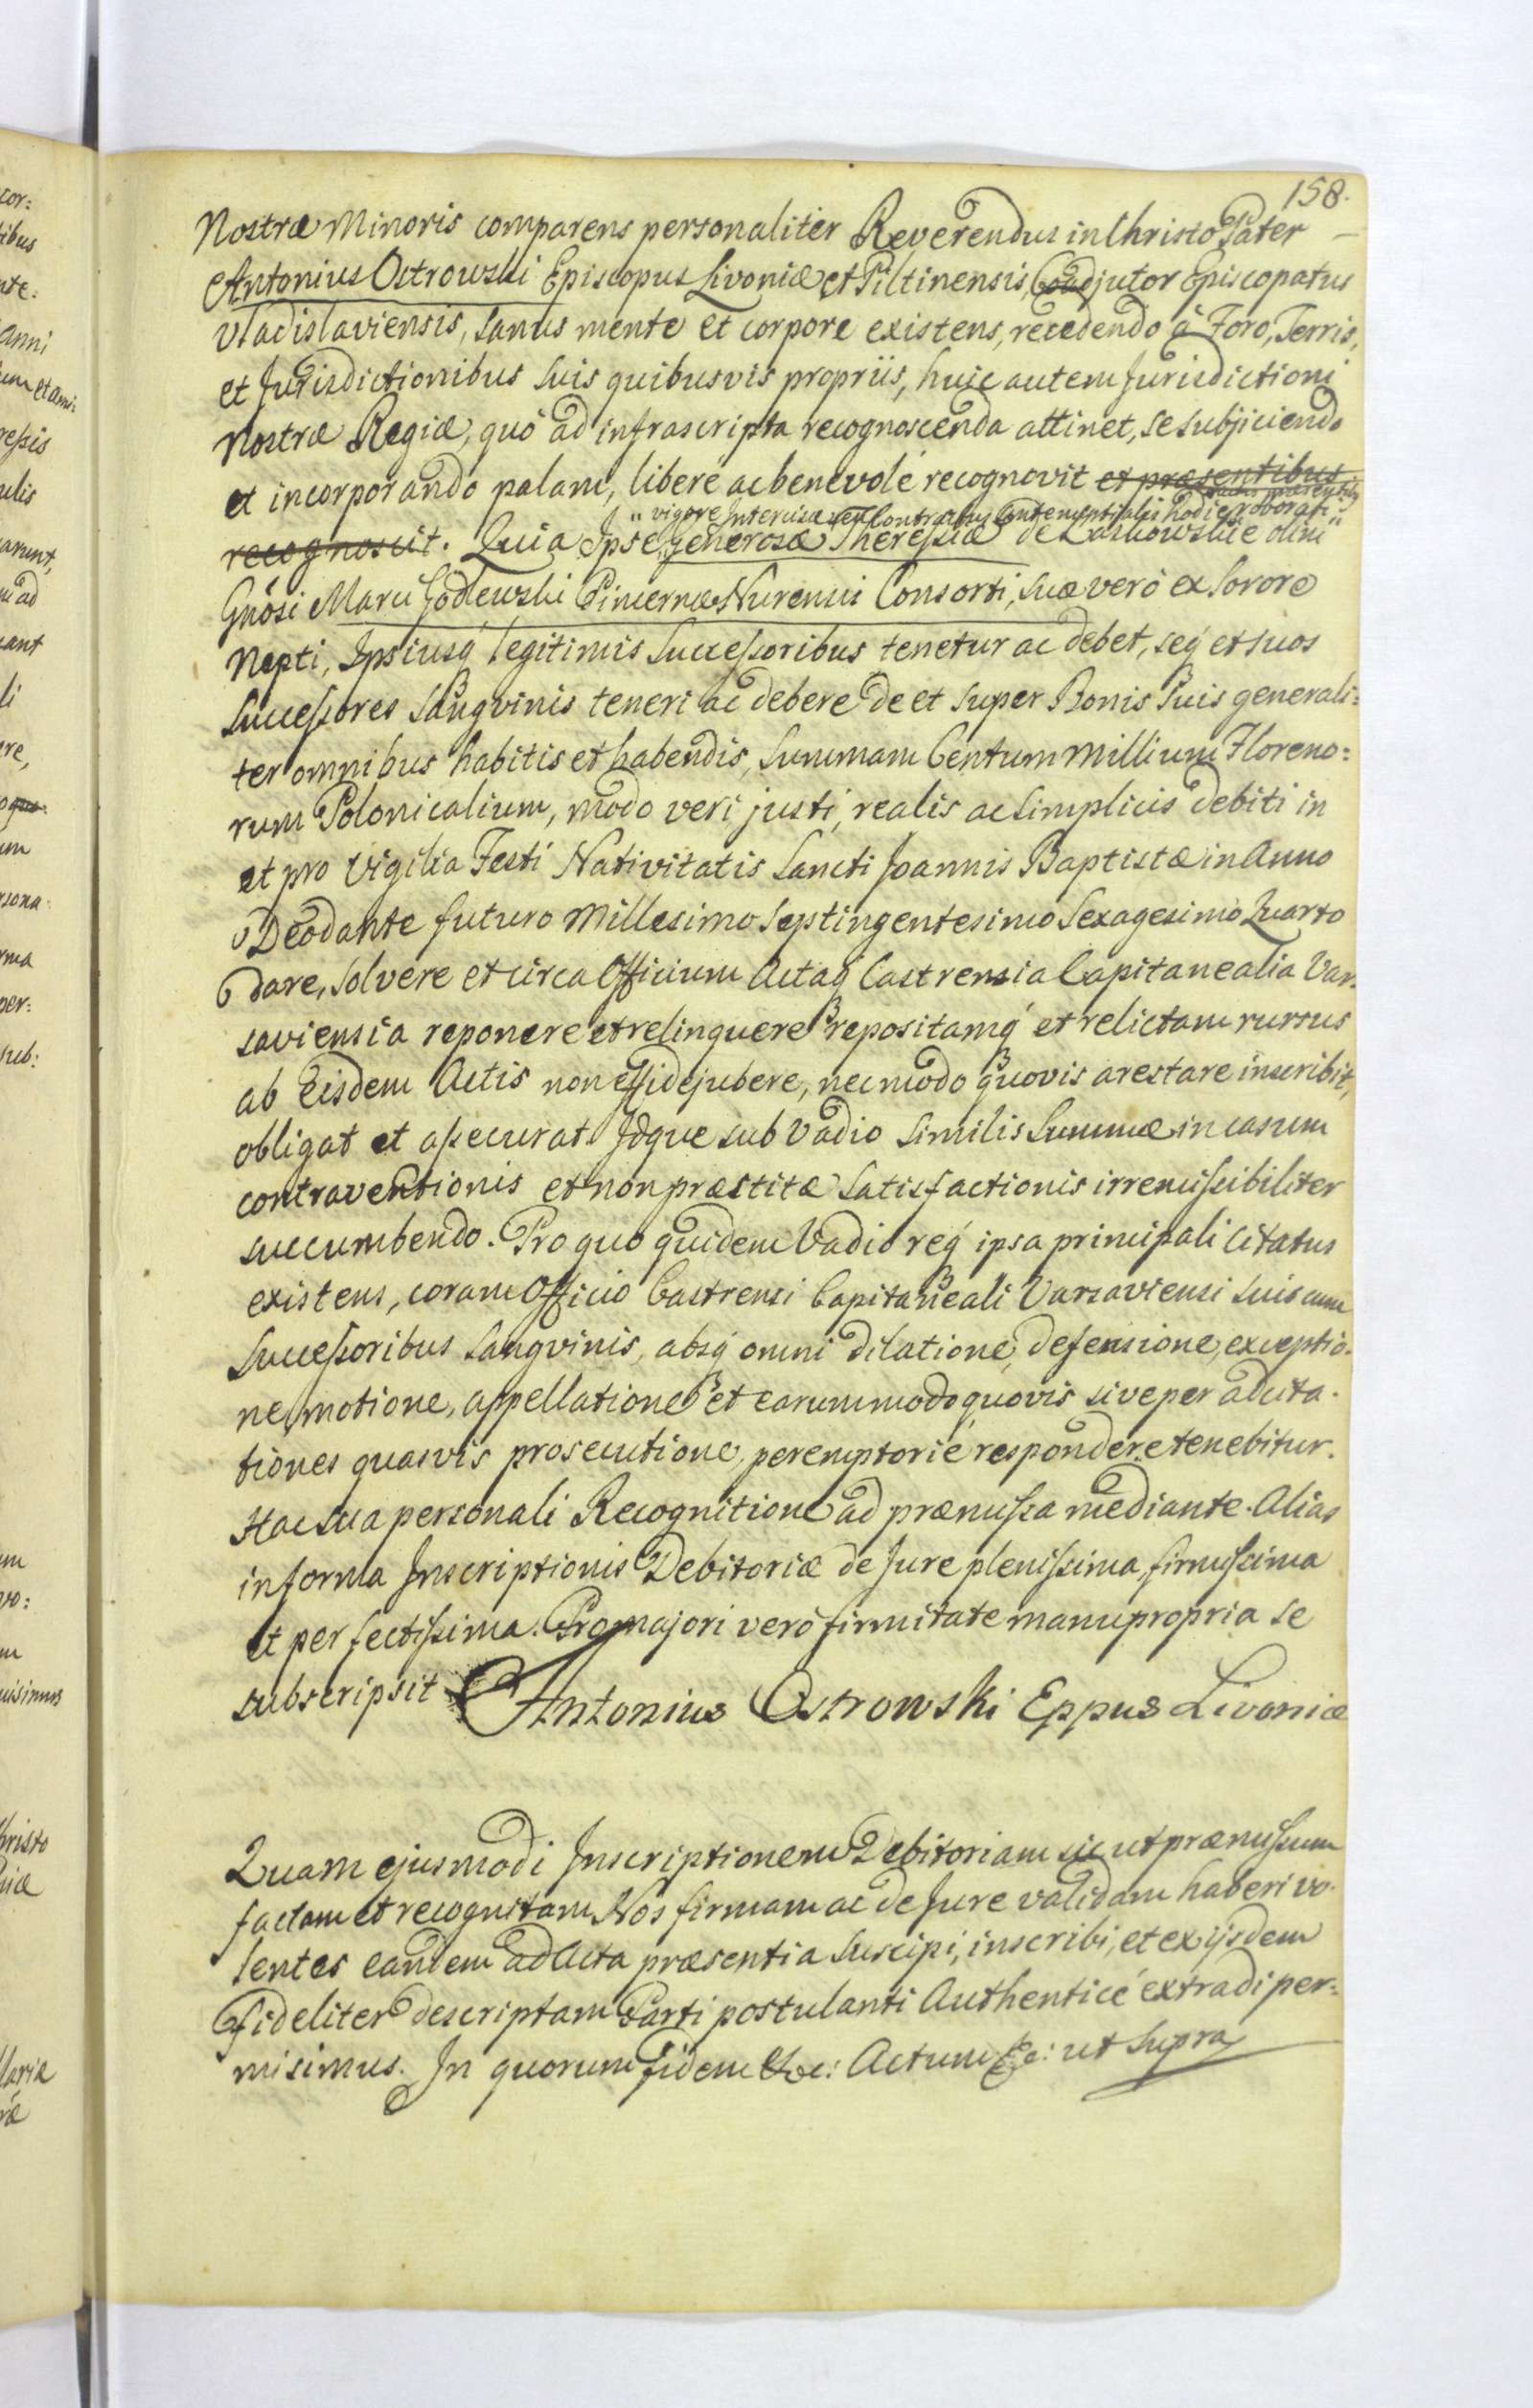 158.
Nostræ Minoris comparens personaliter Reverendus in Christo Pater
Antonius Ostrowski Episcopus Livoniæ et Piltinensis, Coadjutor Episcopatus
Vladislaviensis, sanus mente et corpore existens, recedendo à Foro, Terris,
et Jurisdictionibus suis quibusvis propriis, huic autem Jurisdictioni
Nostræ Regiæ, quo ad infrascripta recognoscenda attinet, se subjiciendo
et incorporando palam, libere ac benevolé recognovit et præsentibus
vigore Intercisæ seu Contractus hodie roborati
recognoscit. Quia Ipse generosæ Theressiæ de olim
Gñosi Marci Godlewski Pincernæ Nurensis Consorti, suæ verò ex sorore
Nepti, Ipsiusq́ legitimis Successoribus tenetur ac debet, seq́ et suos
Successores sangvinis teneri ac debere de et super Bonis suis generali=
ter omnibus habitis et habendis, Summam Centum Millium Floreno=
rum Polonicalium, modo veri justi, realis ac simplicis debiti in
et pro Vigilia Festi Nativitatis Sancti Joannis Baptistæ in Anno
Deo dante futuro Millesimo Septingentesimo Sexagesimo Quarto
dare, solvere et circa Officium Actaq́ Castrensia Capitanealia Var=
saviensia reponere et relinquere repositamq́ et relictam rursus
ab Eisdem Actis non effidejubere, nec modo quovis arestare inscribit,
obligat et assecurat. Idque sub Vadio similis Summæ in casum
contraventionis et non præstitæ satisfactionis irremissibiliter
succumbendo. Pro quo quidem Vadio req́ ipsa principali citatus
existens, coram Officio Castrensi Capitaneali Varsaviensi suis cum
Successoribus sangvinis, absq́ omni dilatione, defensione, exceptio=
ne, motione, appellatione et earum modo quovis sive per adcita=
tiones quasvis prosecutione, peremptorié respondere tenebitur.
Hac sua personali Recognitione ad præmissa mediante. Alias
in forma Inscriptionis Debitoriæ de Jure plenissima, firmissima
et perfectissima. Pro majori verò firmitate manu propria se
subscripsit Antonius Ostrowski Eppus Livoniæ
Quam ejusmodi Inscriptionem Debitoriam sic ut præmissum
factam et recognitam Nos firmam ac de Jure validam haberi vo=
lentes eandem ad Acta præsentia suscipi, inscribi, et ex ijsdem
fideliter descriptam Parti postulanti Authenticé extradi per=
misimus. In quorum fidem &c: Actum &c: ut supra